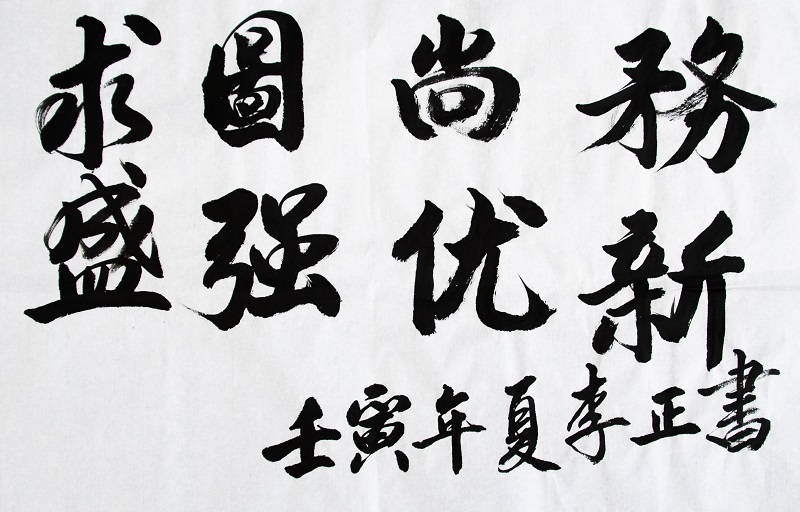 務新
尚优
圖强
求盛
壬寅年夏李正書